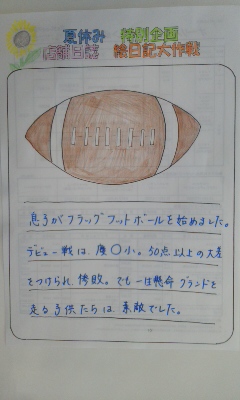 夏休み 特別企画
店雑日誌 絵日記大作戦
息子がフラッグフットボールを始めました。
デビュー戦は、慶〇小。50点以上の大差
をつけられ、惨敗。でも一生懸命グランドを
走る子供たちは、素敵でした。